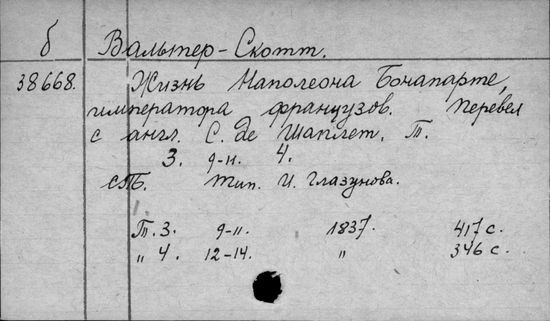 б Вальтер-Скотт.
38668. Жизнь Наполеона Бонапарте,
императора французов. Перевел
с англ. С. де Шаплет. Т.
3. 9-11. 4.
СПБ. Тип. И. Глазунова.
1.
Т. 3. 9-11. 1837. 417 с.
" 4. 12-14. " 346 с.